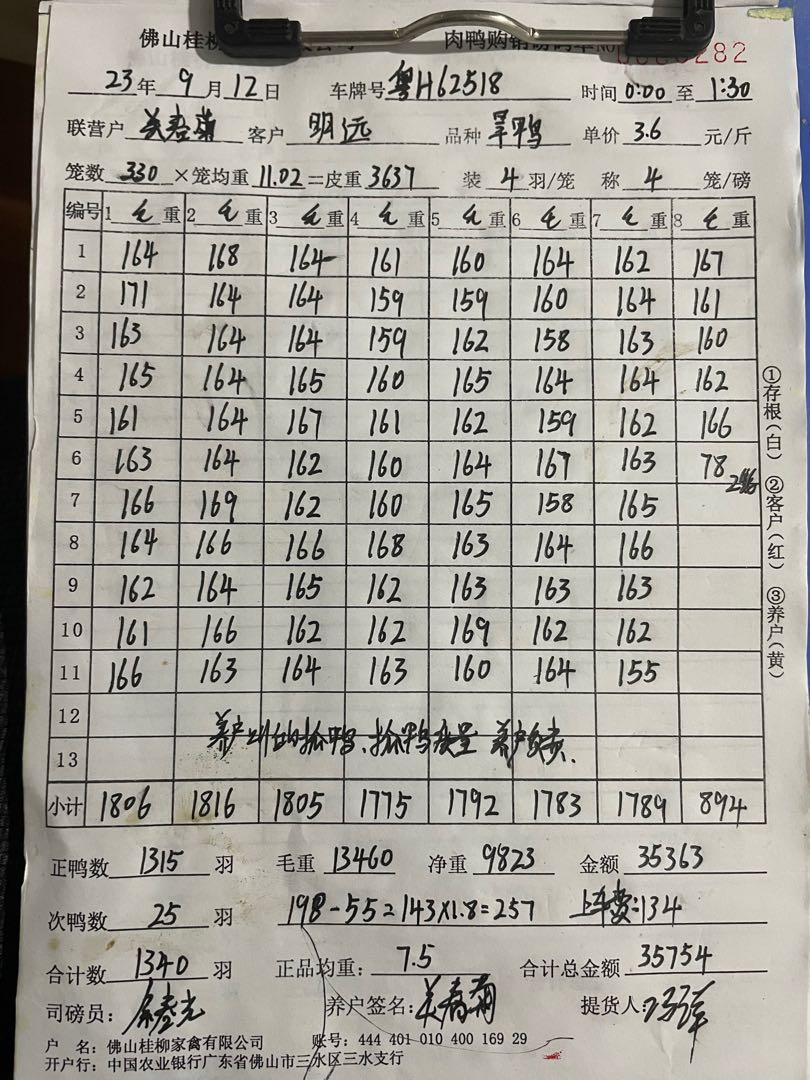 佛山桂柳 肉鸭购销磅码单NO 282
23年 9月12日 车牌号粤H62518 时间0:00至1:30
联营户 客户 明远 品种 旱鸭 单价 3.6 元/斤
笼数 330 ×笼均重 11.02 =皮重 3637 装 4 羽/笼 称 4 笼/磅
编号 1 毛 重 2 毛 重 3 毛 重 4 毛 重 5 毛 重 6 毛 重 7 毛 重 8 毛 重
1 164 168 164 161 160 164 162 167
2 171 164 164 159 159 160 164 161
3 163 164 164 159 162 158 163 160
4 165 164 165 160 165 164 164 162
5 161 164 167 161 162 159 162 166
6 163 164 162 160 164 167 163 78
7 166 169 162 160 165 158 165
8 164 166 166 168 163 164 166
9 162 164 165 162 163 163 163
10 161 166 162 162 169 162 162
11 166 163 164 163 160 164 155
12
养户 抓鸭、抓鸭质量 养户负责.
13
小计 1806 1816 1805 1775 1792 1783 1789 894
①存根(白) ②客户(红) ③养户(黄)
正鸭数 1315 羽 毛重 13460 净重 9823 金额 35363
次鸭数 25 羽 198-55=143×1.8=257 上车费:134
合计数 1340 羽 正品均重: 7.5 合计总金额 35754
司磅员: 养户签名: 提货人:
户 名: 佛山桂柳家禽有限公司 账号: 444 401 010 400 169 29
开户行: 中国农业银行广东省佛山市三水区三水支行